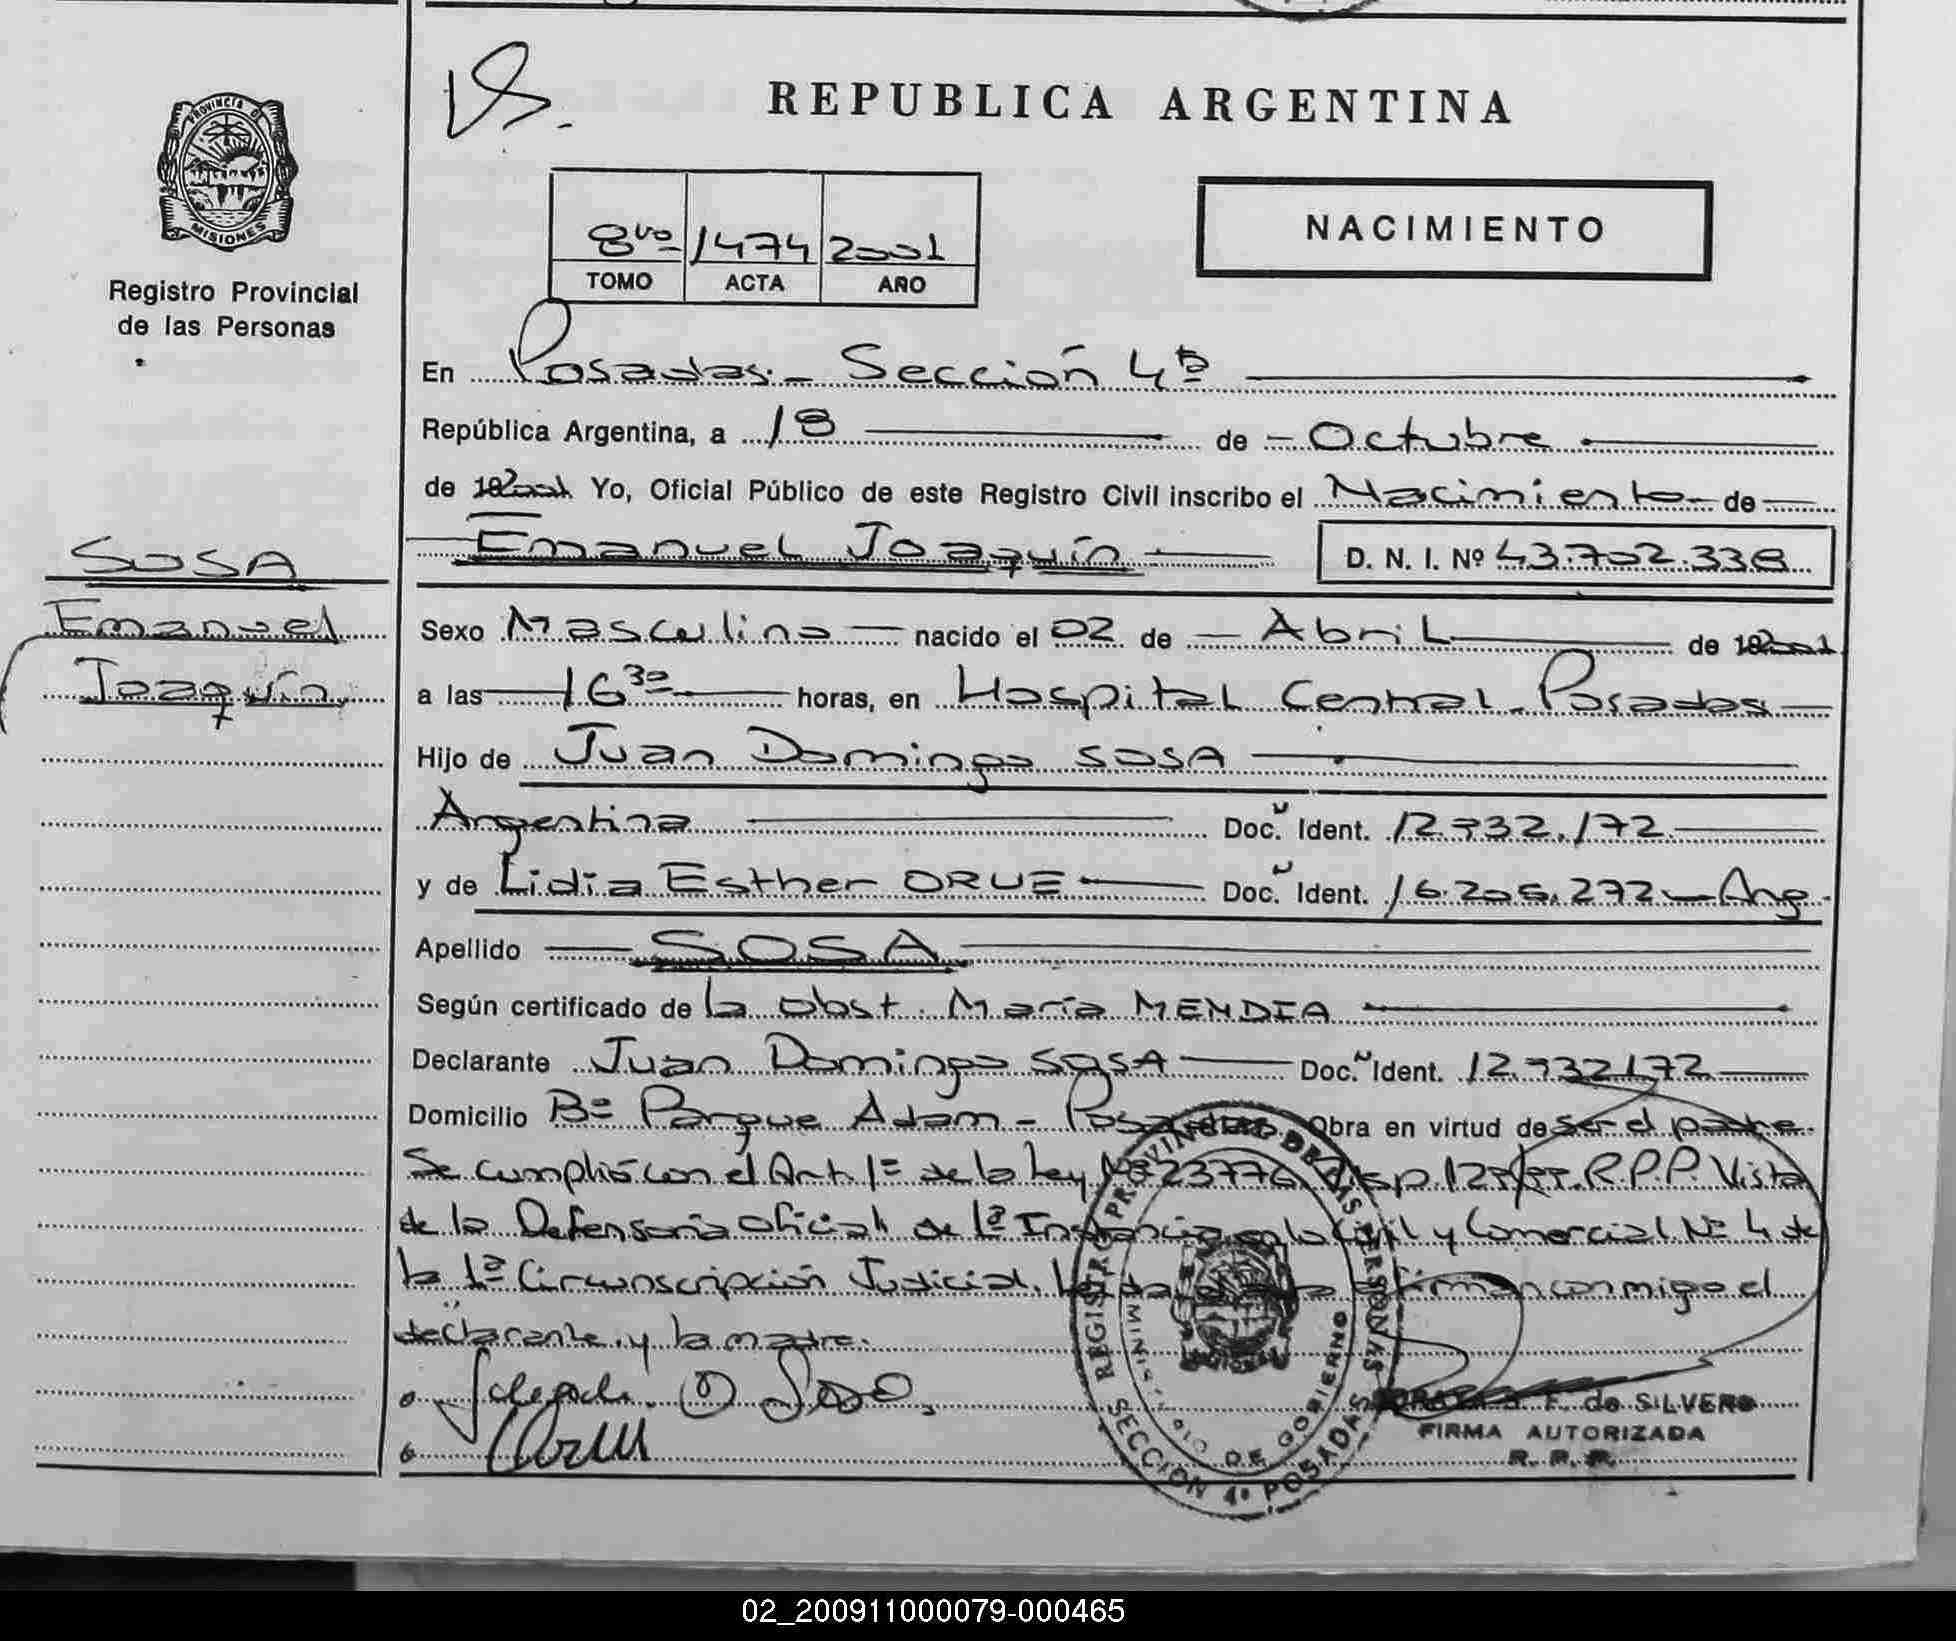 REPUBLICA ARGENTINA
PROVINCIA D
MISIONES
Registro Provincial
de las Personas
8vo 1474 2001
TOMO ACTA AÑO
NACIMIENTO
En Posadas - Sección 4ª
República Argentina, a 18 de - Octubre
de 192001 Yo, Oficial Público de este Registro Civil inscribo el Nacimiento de
Emanuel Joaquín D. N. I. Nº 43.702.338
SOSA
Emanuel
Joaquín
Sexo Masculino nacido el 02 de Abril de 192001
a las 16 30 horas, en Hospital Central - Posadas
Hijo de Juan Domingo SOSA
Argentina Doc. Ident. 12.932.172
y de Lidia Esther ORUE Doc. Ident. 16.205.272 - Arg.
Apellido SOSA
Según certificado de la obst. María MENDIA
Declarante Juan Domingo SOSA Doc. Ident. 12.932172
Domicilio Bº Parque Adam - Posadas Obra en virtud de ser el padre.
Se cumplió con el Art. 1º de la Ley Nº 23776 Disp. R.P.P. Vista
de la Defensoría Oficial de 1ª Instancia en lo Civil y Comercial Nº 4 de
la 1ª Circunscripción Judicial. Leída firman conmigo el
declarante y la madre.
F. de SILVERO
FIRMA AUTORIZADA
R. P. P.
REGISTRO PROVINCIAL DE LAS PERSONAS
MINISTERIO DE GOBIERNO
SECCION 4ª POSADAS
02_200911000079-000465